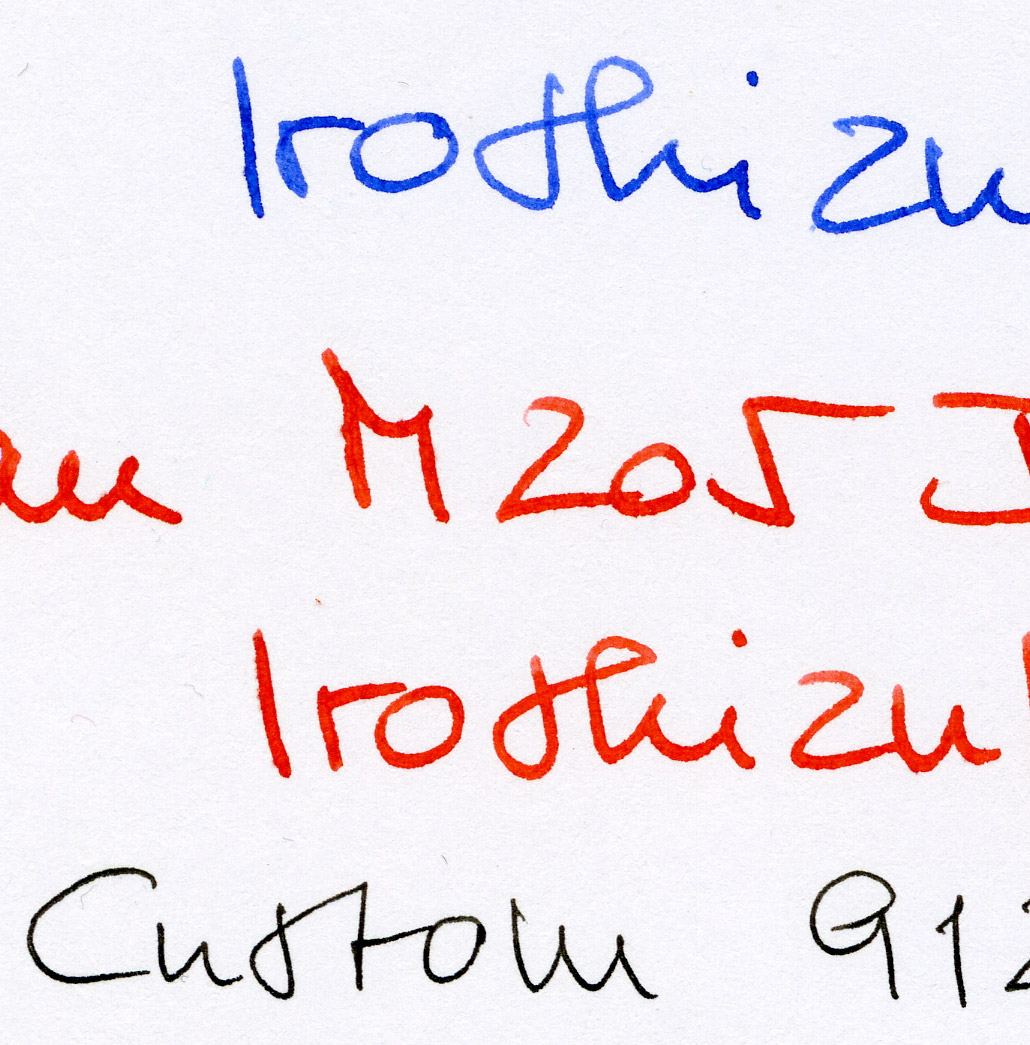 Iroshizu
M205
Iroshizu
Custom 912